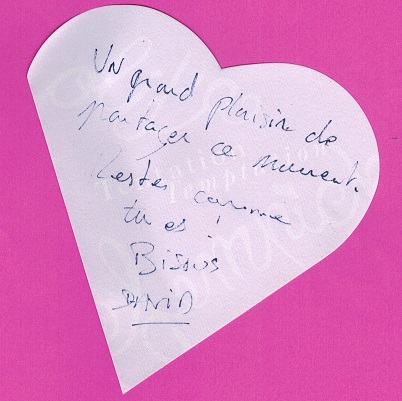 Un grand plaisir de
partager ce moment.
Restes comme
tu es !
Bisous
DAVID
Tentation
Temptation